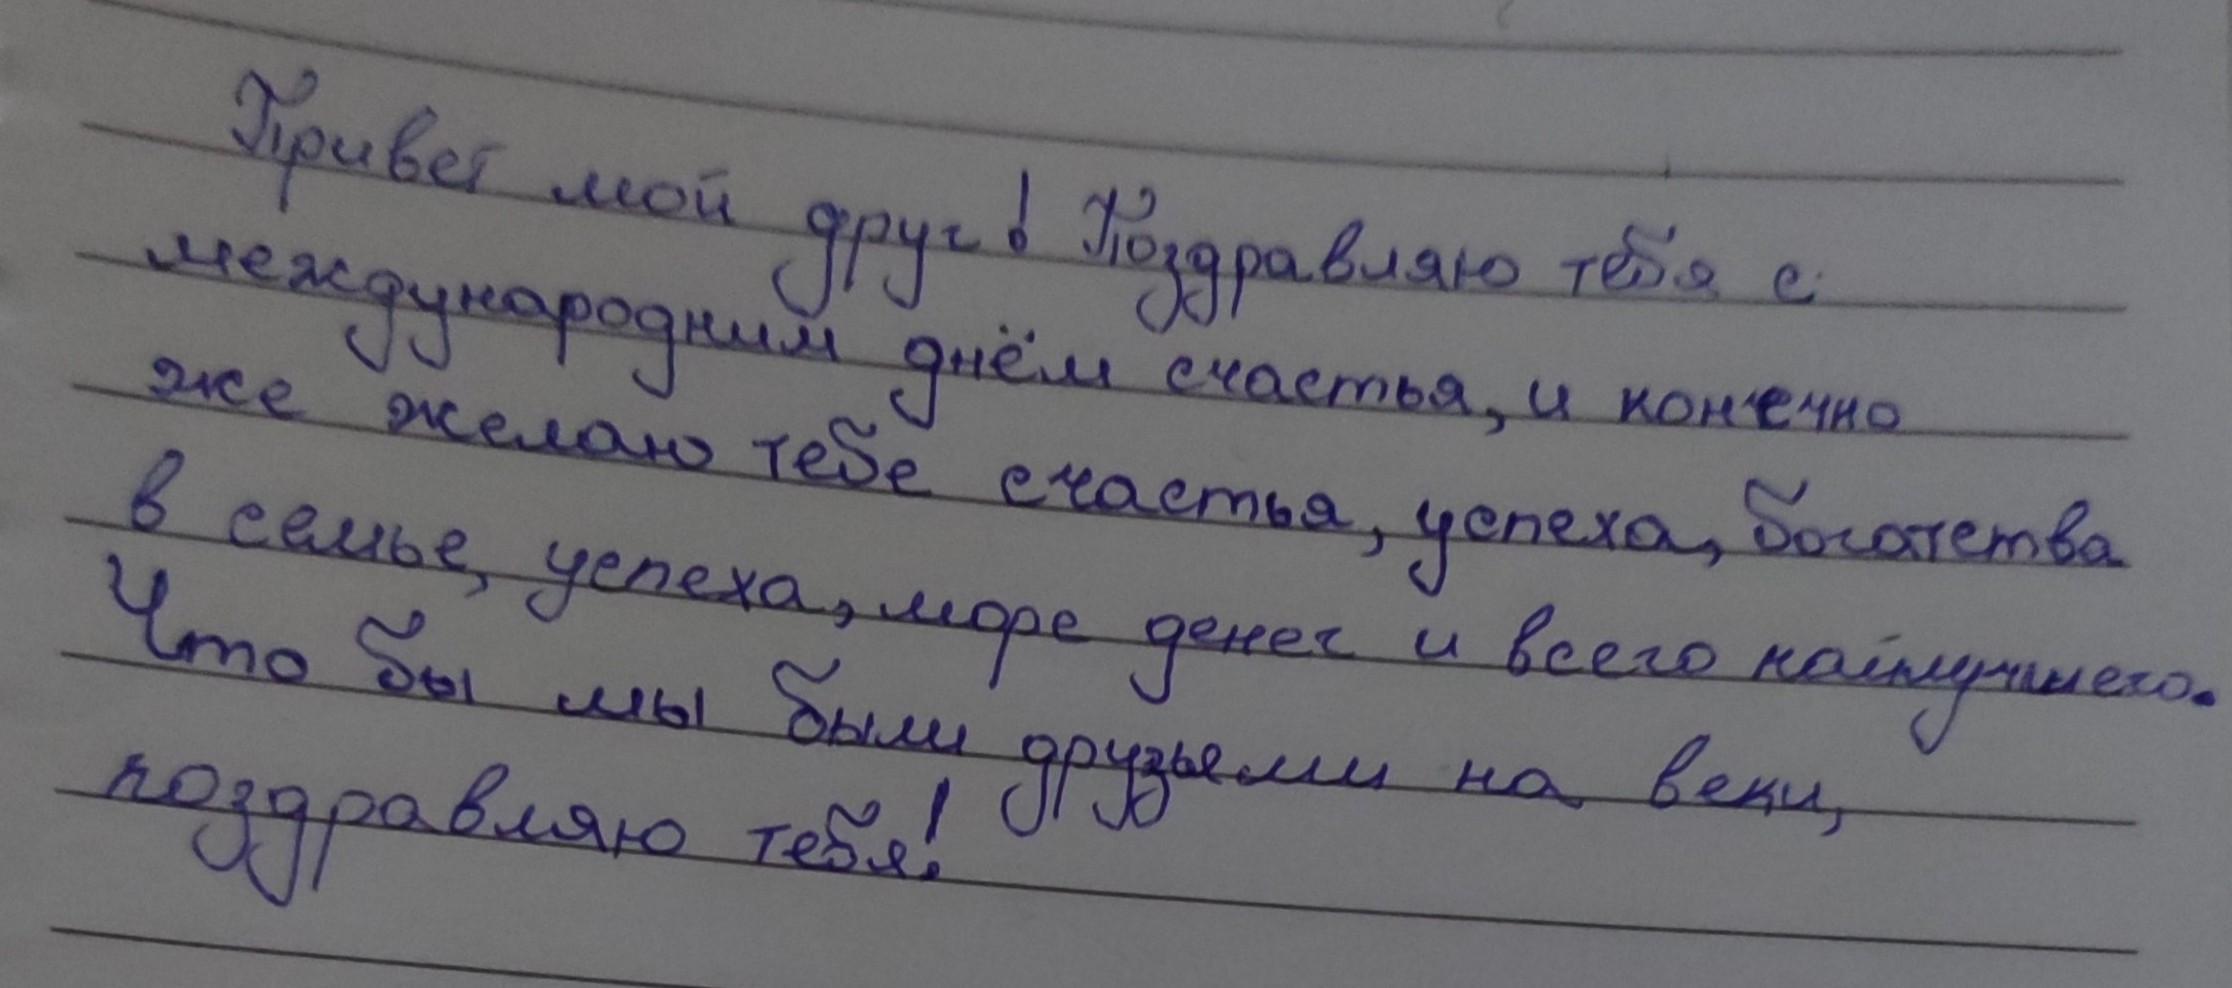 Привет мой друг! Поздравляю тебя с
международним днём счастья, и конечно
же желаю тебе счастья, успеха, богатства
в семье, успеха, море денег и всего найлучшего.
Что бы мы были друзьями на веки,
поздравляю тебя!